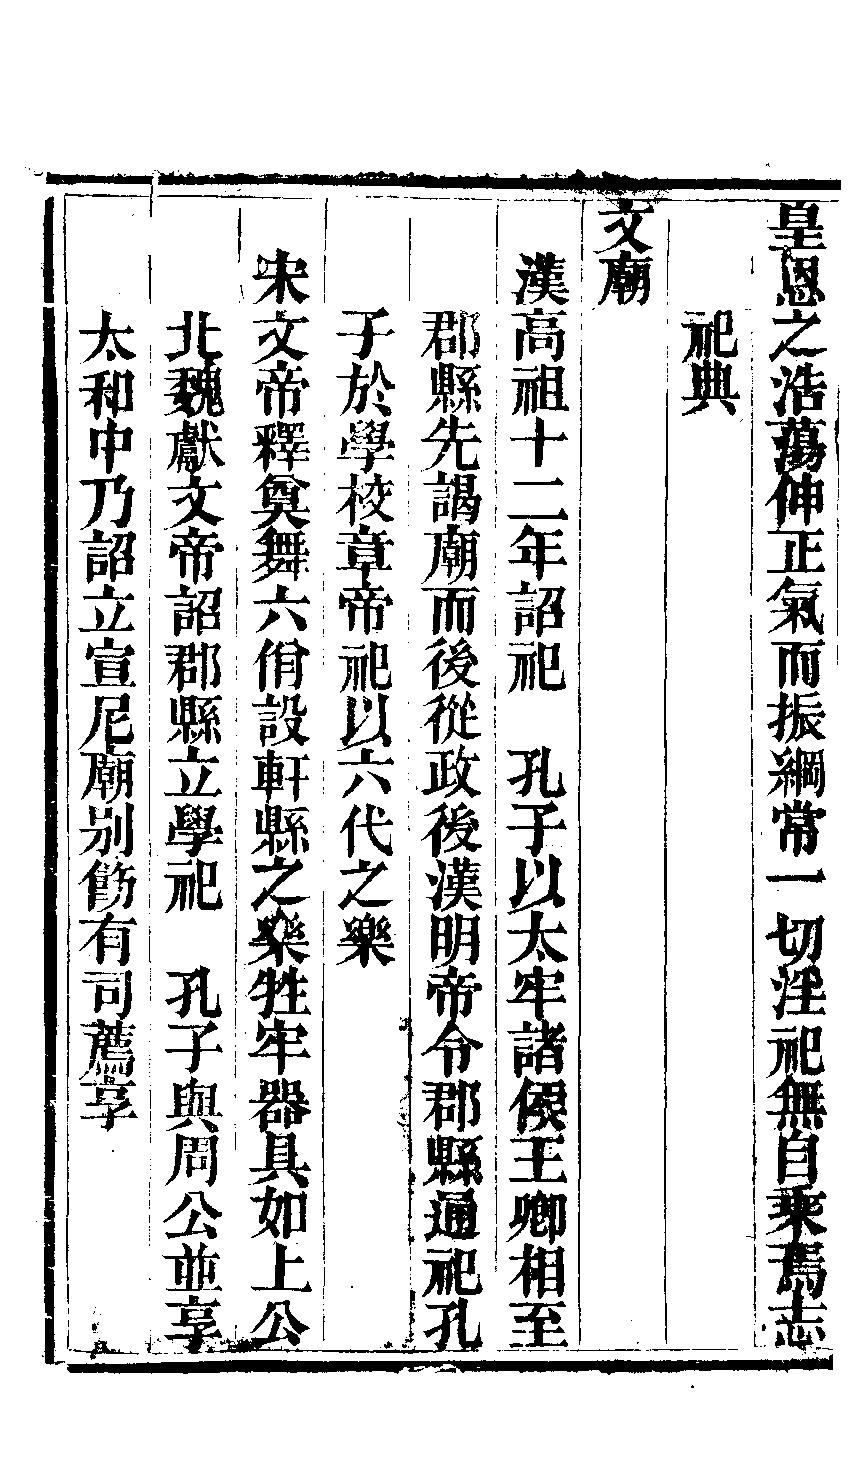 皇恩之浩蕩伸正氣而振綱常一切淫祀無自乘焉志
祀典
文廟
漢高祖十二年詔祀　孔子以太牢諸侯王卿相至
郡縣先謁廟而後從政後漢明帝令郡縣通祀孔
子於學校章帝祀以六代之樂
宋文帝釋奠舞六佾設軒縣之樂牲牢器具如上公
北魏獻文帝詔郡縣立學祀　孔子與周公並享
太和中乃詔立宣尼廟别飭有司薦享